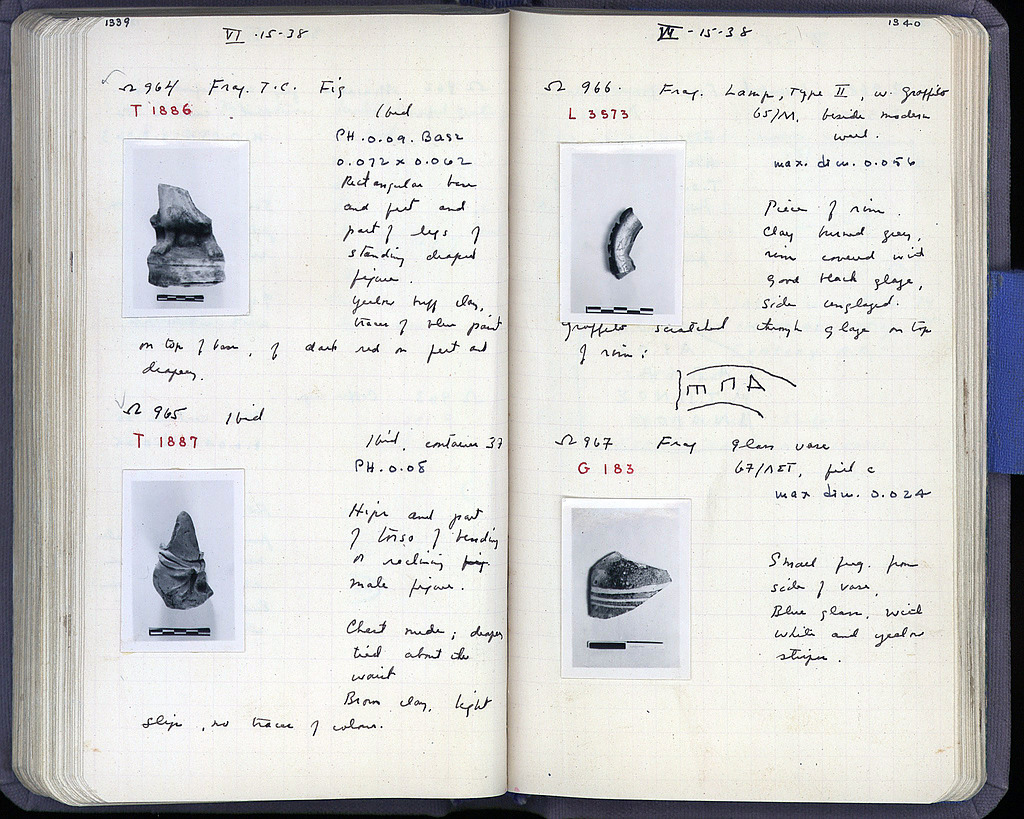 1339
VI · 15-38
Ω 964 Frag. T.C. Fig
T 1886
Ibid
PH. 0.09. Base
0.072 x 0.062
Rectangular base
and feet and
part of legs of
standing draped
figure.
Yellow buff clay,
traces of blue paint
on top of base, of dark red on feet and
drapery.
Ω 965 Ibid
T 1887
Ibid, container 37
PH. 0.08
Hips and part
of torso of bending
or reclining
male figure.
Chest nude; drapery
tied about the
waist
Brown clay, light
slip, no traces of colour.
1340
VI - 15-38
Ω 966. Frag. Lamp, Type II, w. graffito
L 3573
65/M, beside modern
wall.
max. dim. 0.056
Piece of rim.
Clay burned grey,
rim covered with
good black glaze,
side unglazed.
Graffito scratched through glaze on top
of rim:
ΕΠΑ
Ω 967 Frag glass vase
G 183
67/ΛΣΤ, fill c
max dim. 0.024
Small frag. from
side of vase,
Blue glass, with
white and yellow
stripes.